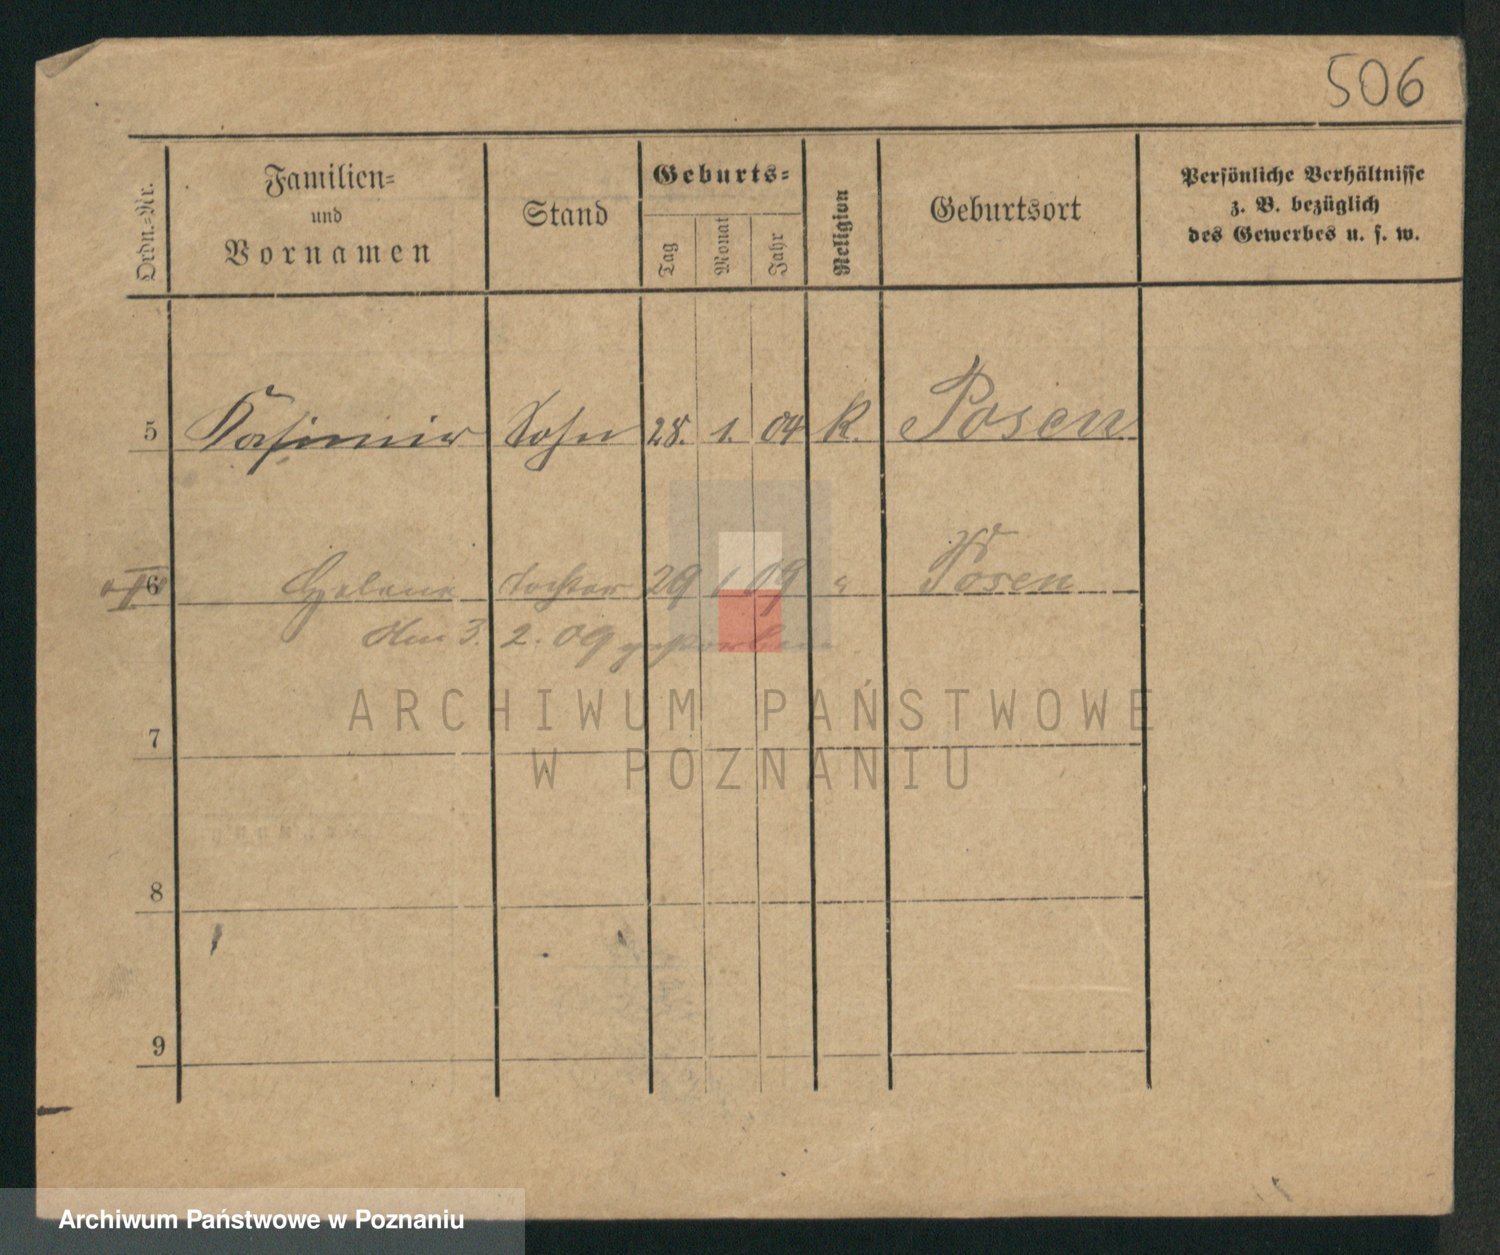 506
Ordn.-Nr.
Familien-
und
Vornamen
Stand
Geburts-
Tag
Monat
Jahr
Religion
Geburtsort
Persönliche Verhältnisse
z. B. bezüglich
des Gewerbes u. s. w.
5 Kasimir Sohn 28. 1. 04 K. Posen
6 Helene Tochter 29 1 09 " Posen
Am 3. 2. 09 gestorben
ARCHIWUM PAŃSTWOWE
W POZNANIU
7
8
9
Archiwum Państwowe w Poznaniu